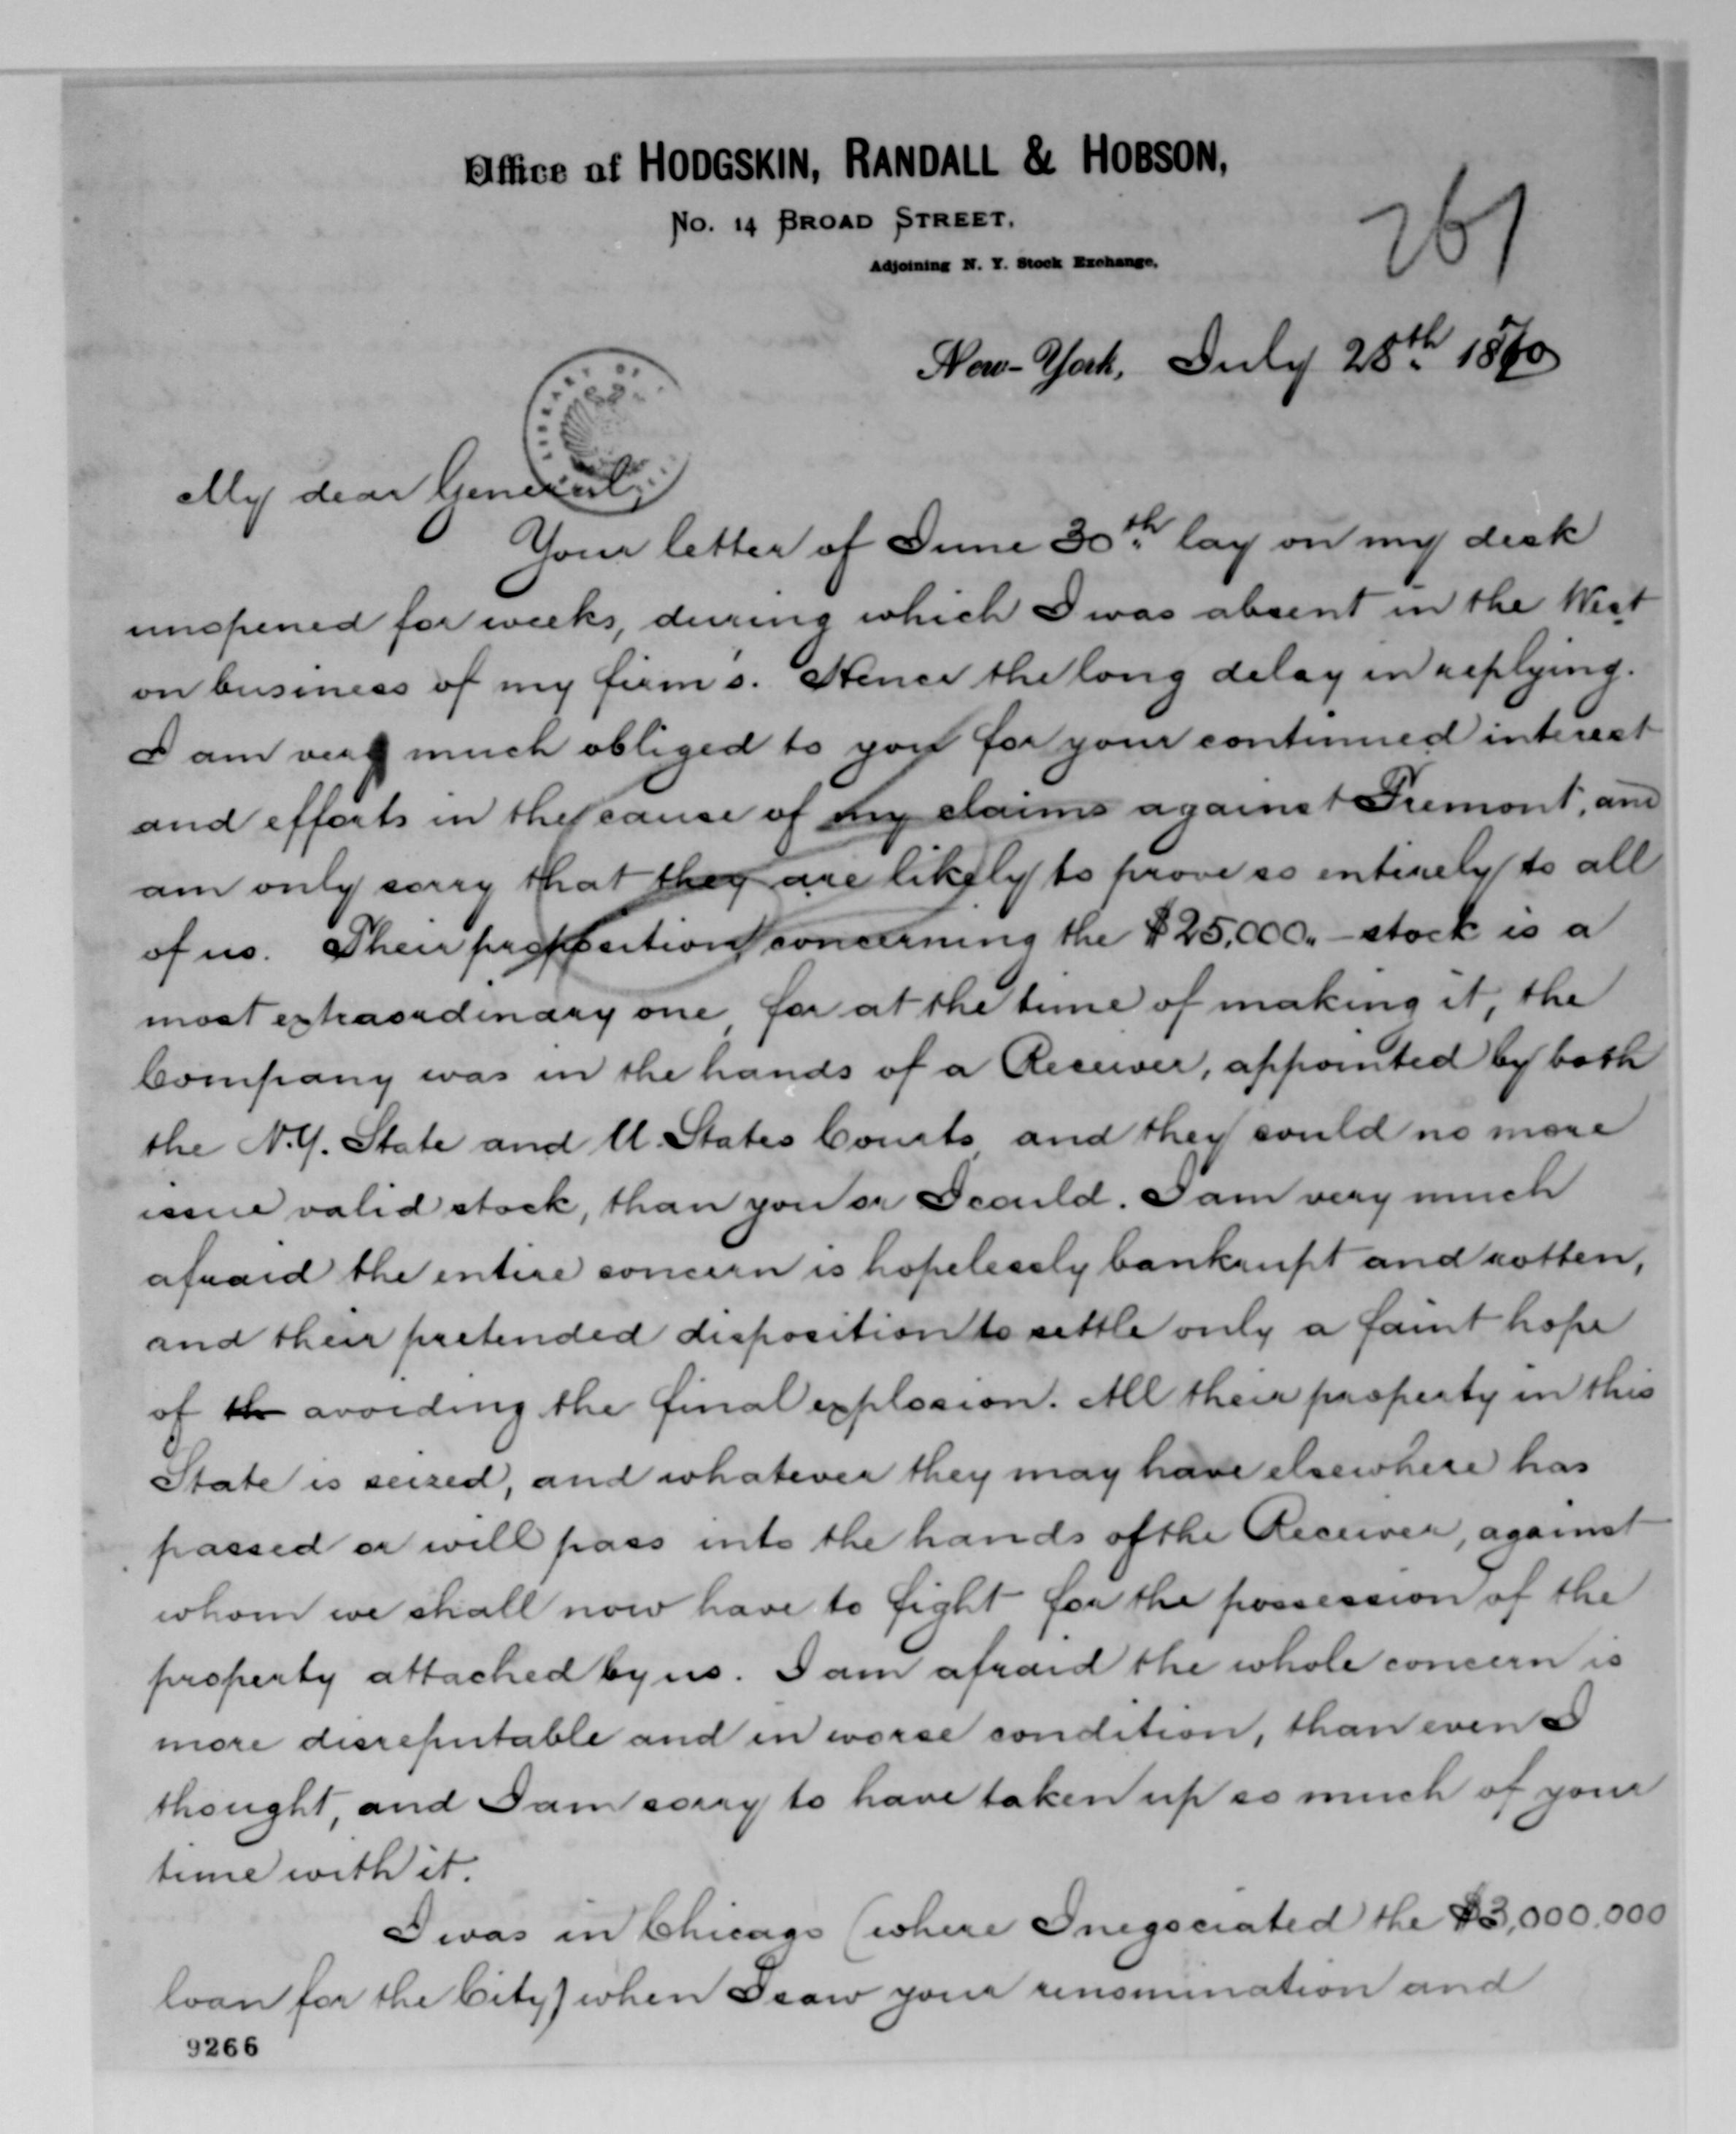 Office of HODGSKIN, RANDALL & HOBSON,
No. 14 BROAD STREET.
Adjoining N. Y. Stock Exchange.
261
New-York, July 28th 1870
LIBRARY OF
My dear General;
Your letter of June 30th lay on my desk
unopened for weeks, during which I was absent in the West
on business of my firm's. Hence the long delay in replying.
I am very much obliged to you for your continued interest
and efforts in the cause of my claims against Fremont, and
am only sorry that they are likely to prove so entirely to all
of us. Their proposition concerning the $25,000.- stock is a
most extraordinary one, for at the time of making it, the
Company was in the hands of a Receiver, appointed by both
the N.Y. State and U. States Courts and they could no more
issue valid stock, than you or I could. I am very much
afraid the entire concern is hopelessly bankrupt and rotten,
and their pretended disposition to settle only a faint hope
of th avoiding the final explosion. All their property in this
State is seized, and whatever they may have elsewhere has
passed or will pass into the hands of the Receiver, against
whom we shall now have to fight for the possession of the
property attached by us. I am afraid the whole concern is
more disreputable and in worse condition, than even I
thought, and I am sorry to have taken up so much of your
time with it.
I was in Chicago (where I negociated the $3,000.000
loan for the City) when I saw your renomination and
9266